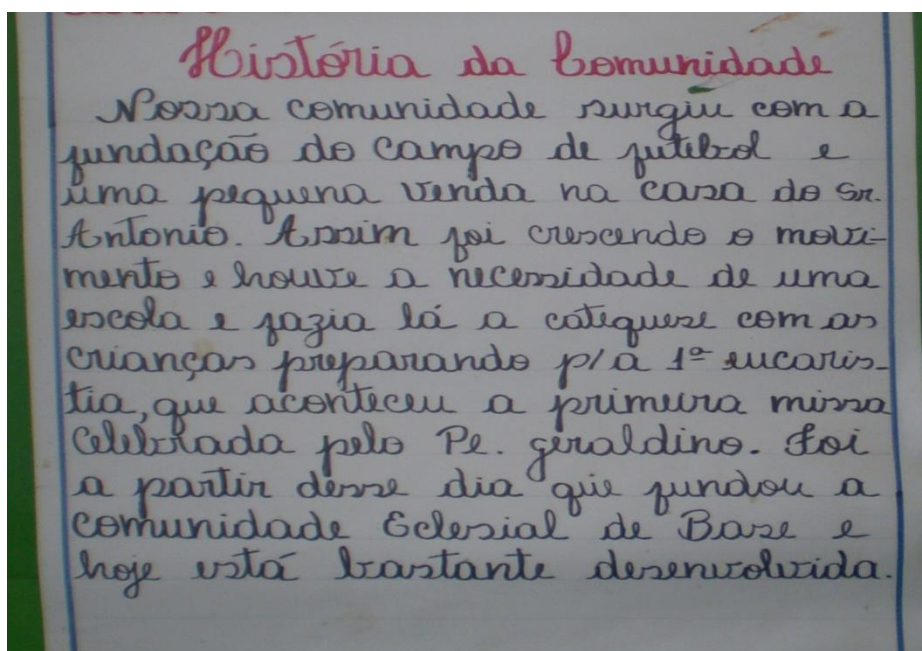 História da Comunidade
Nossa comunidade surgiu com a
fundação do campo de futebol e
uma pequena venda na casa do Sr.
Antonio. Assim foi crescendo o movi-
mento e houve a necessidade de uma
escola e fazia lá a catequese com as
crianças preparando p/a 1ª eucaris-
tia, que aconteceu a primeira missa
celebrada pelo Pe. geraldino. Foi
a partir desse dia que fundou a
comunidade Eclesial de Base e
hoje está bastante desenvolvida.